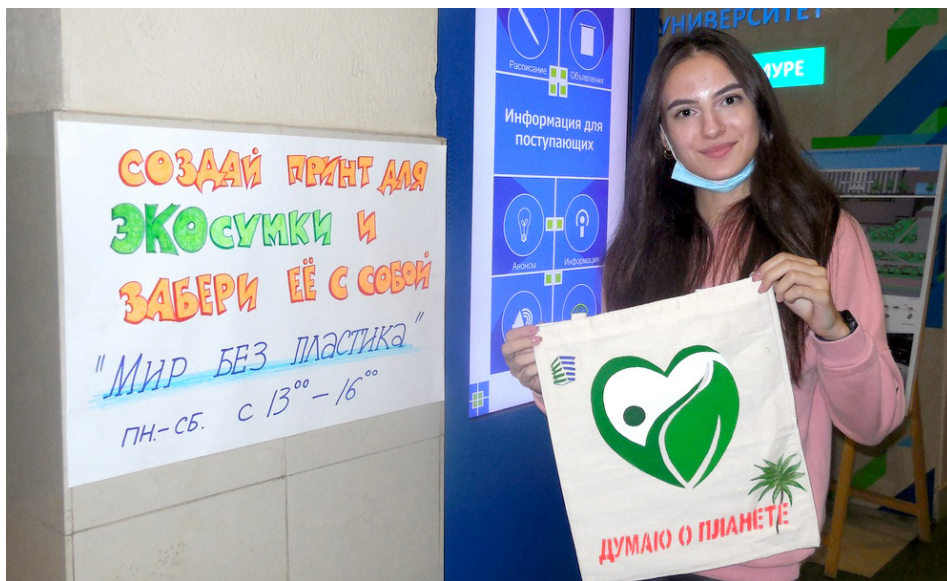 СОЗДАЙ ПРИНТ ДЛЯ
ЭКОСУМКИ И
ЗАБЕРИ ЕЁ С СОБОЙ
"МИР БЕЗ ПЛАСТИКА"
ПН.-СБ. С 13⁰⁰ – 16⁰⁰
Расписание
Объявления
Информация для
поступающих
Анонсы
Информация
УНИВЕРСИТЕТ
ДУМАЮ О ПЛАНЕТЕ